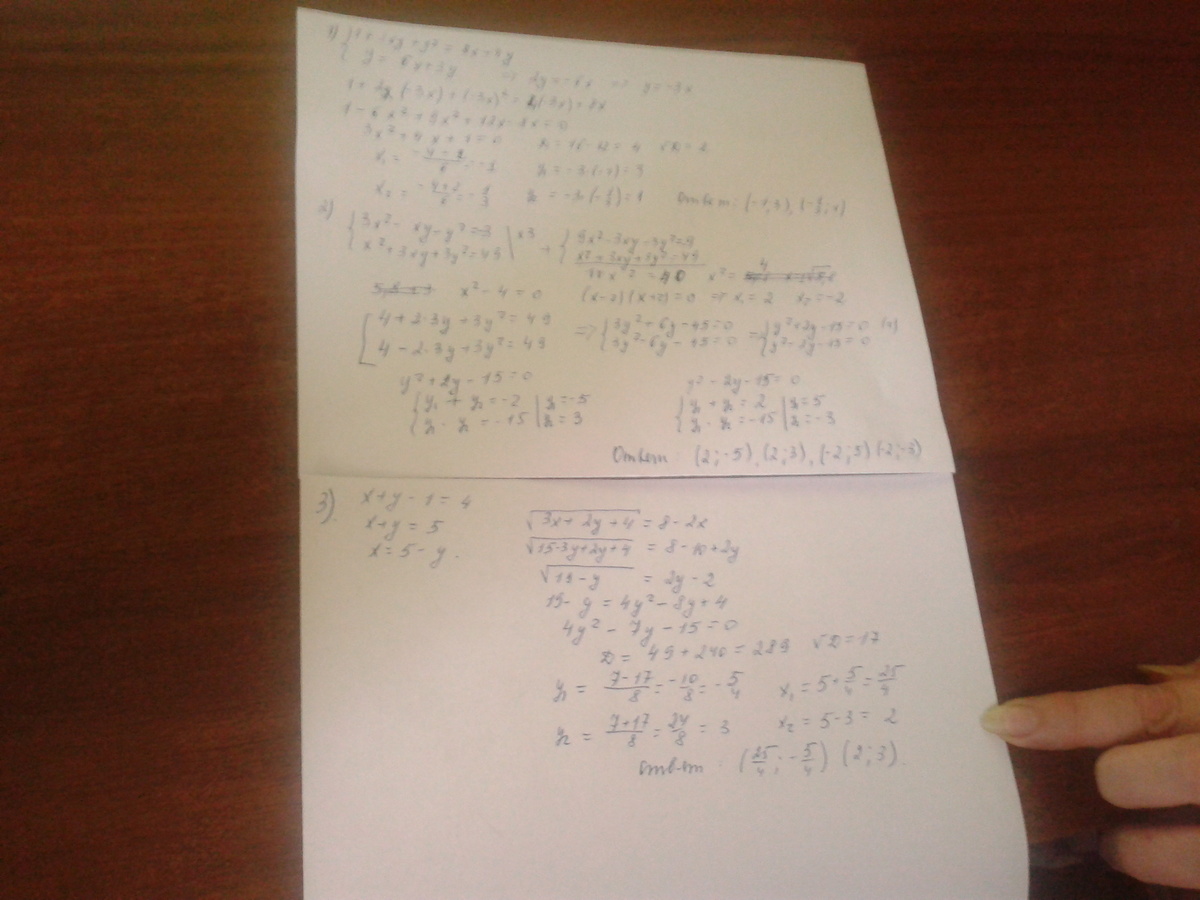 1) {1 + 2xy + y² = 4y + 8x
y = 6x + 3y ⇒ 2y = -6x ⇒ y = -3x
1 - 6x² + 9x² + 12x - 8x = 0
3x² + 4x + 1 = 0 D = 16 - 12 = 4 √D = 2
x₁ = = -1 y₁ = -3·(-1) = 3
x₂ = (-4+2)/6 = -1/3 y₂ = -3·(-1/3) = 1 Ответ: (-1; 3), (-1/3; 1)
2) {3x² - xy - y² = 3 | x3 + {9x² - 3xy - 3y² = 9
x² + 3xy + 3y² = 49 x² + 3xy + 3y² = 49
10x² = 40 x² = 4
x² - 4 = 0 (x-2)(x+2) = 0 ⇒ x₁ = 2 x₂ = -2
[4 + 2·3y + 3y² = 49 ⇒ {3y² + 6y - 45 = 0 ⇒ {y² + 2y - 15 = 0
4 - 2·3y + 3y² = 49 3y² - 6y - 45 = 0 y² - 2y - 15 = 0
y² + 2y - 15 = 0 y² - 2y - 15 = 0
{y₁ + y₂ = -2 | y₁ = -5 {y₁ + y₂ = 2 | y₁ = 5
y₁ · y₂ = -15 | y₂ = 3 y₁ · y₂ = -15 | y₂ = -3
Ответ (2; -5), (2; 3), (-2; 5) (-2; -3)
3) x + y - 1 = 4
x + y = 5 √(3x + 2y + 4) = 8 - 2x
x = 5 - y. √(15-3y+2y+4) = 8 - 10 + 2y
√(19 - y) = 2y - 2
19 - y = 4y² - 8y + 4
4y² - 7y - 15 = 0
D = 49 + 240 = 289 √D = 17
y₁ = (7-17)/8 = -10/8 = -5/4 x₁ = 5 + 5/4 = 25/4
y₂ = (7+17)/8 = 24/8 = 3 x₂ = 5 - 3 = 2
Ответ: (25/4; -5/4) (2; 3).